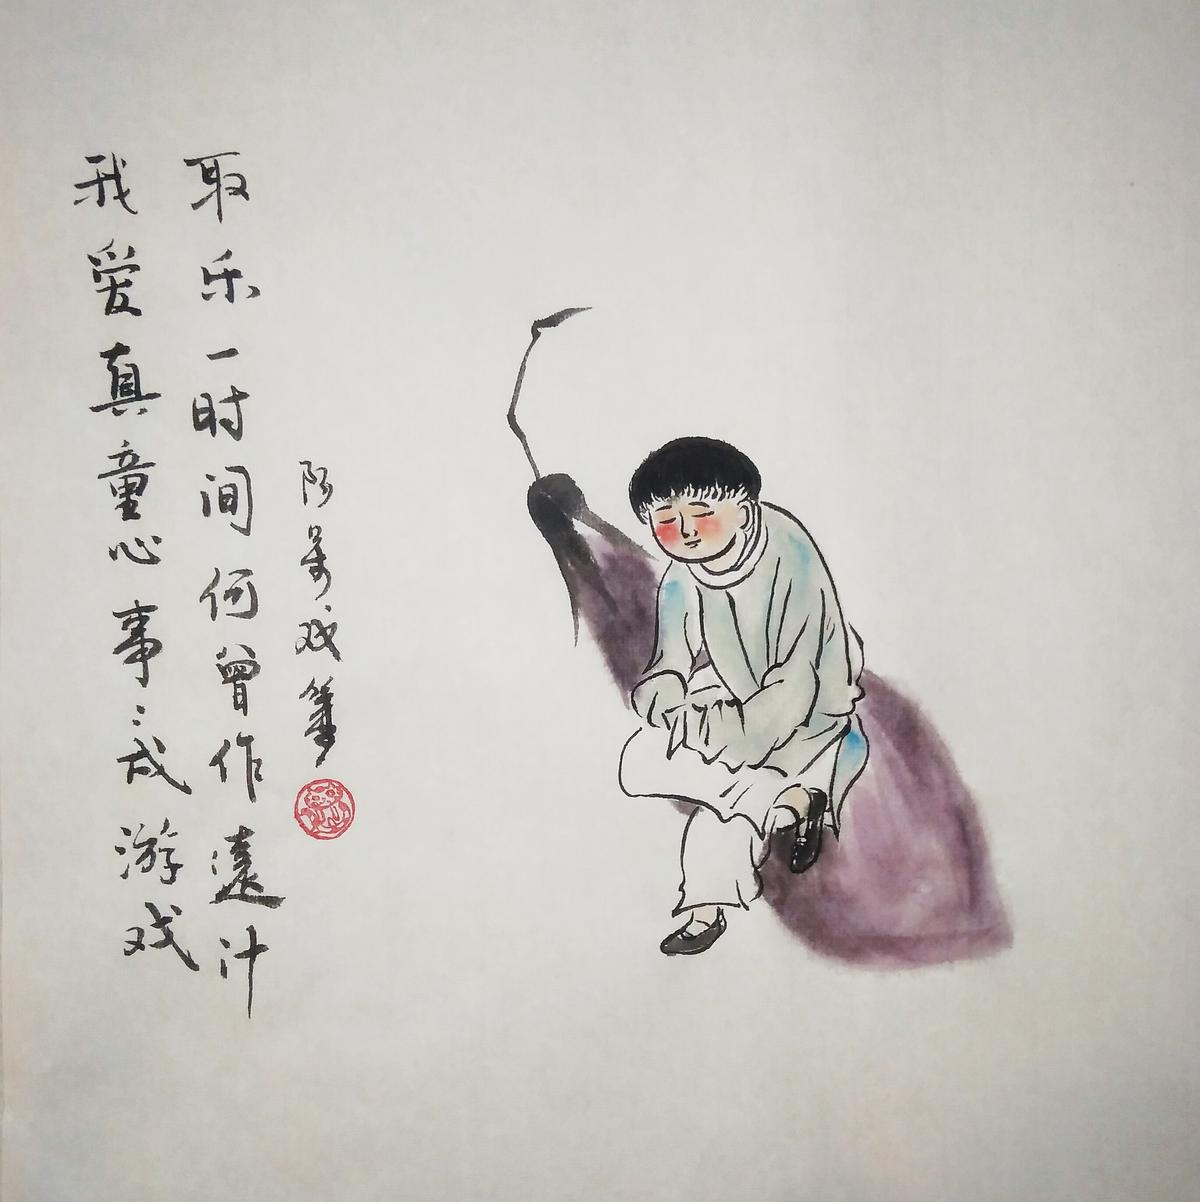 我爱真童心事:成游戏
取乐一时间何曾作遠计
阿 戏筆